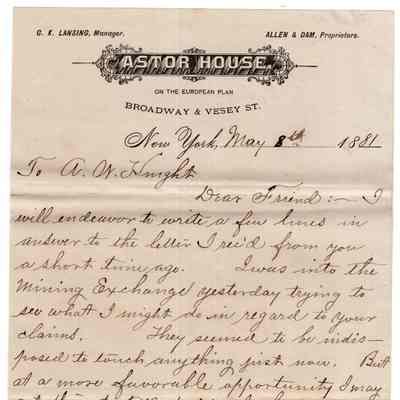 G. K. LANSING, Manager. ALLEN & DAM, Proprietors.
ASTOR HOUSE.
ON THE EUROPEAN PLAN
BROADWAY & VESEY ST.
New York, May 8th 1881
To A. W. Knight
Dear Friend:— I
will endeavor to write a few lines in
answer to the letter I rec'd from you
a short time ago. I was into the
Mining Exchange yesterday trying to
see what I might do in regard to your
claims. They seemed to be indis-
posed to touch anything just now. But
at a more favorable opportunity I may